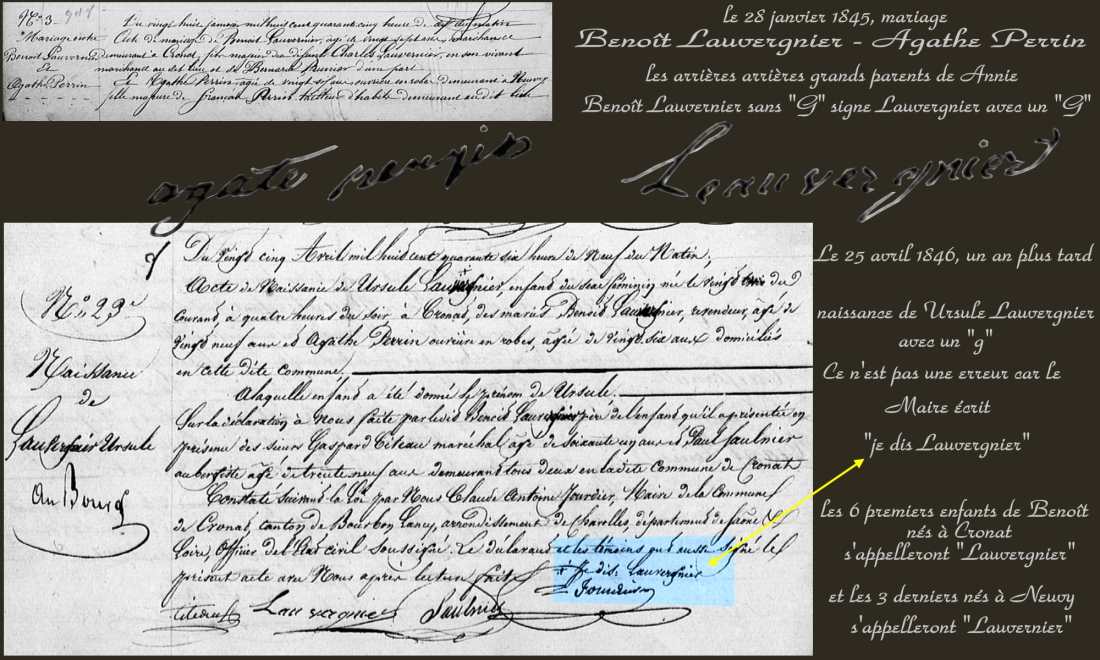 N° 3
Mariage entre
Benoit Lauvernier
et
Agathe Perrin
Du vingt huit janvier mil huit cent quarante cinq heure de du matin
Acte de mariage de Benoit Lauvernier, agé de vingt sept ans, marchand
demeurant à Cronat, fils majeur de défunt Charles Lauvernier, en son vivant
marchand au dit lieu et de Bernard d'une part
Et Agathe Perrin agée de vingt ans ouvrière en robe demeurant à Neuvy
fille majeure de françois Perrin d'habits demeurant au dit lieu
le 28 janvier 1845, mariage
Benoît Lauvergnier - Agathe Perrin
les arrières arrières grands parents de Annie
Benoît Lauvernier sans "G" signe Lauvergnier avec un "G"
agate perrin
Lauvergnier
N° 23
Naissance
de
Lauvergnier Ursule
au Bourg
Du vingt cinq Avril mil huit cent quarante six heure de Neuf du Matin.
Acte de Naissance de Ursule Lauvergnier, enfant du sexe féminin né le vingt trois du
Courant, à quatre heures du soir à Cronat, des mariés Benoit Lauvergnier, revendeur, âgé de
vingt neuf ans et Agathe Perrin ouvrière en robes, âgée de vingt six ans domiciliés
en cette dite commune.
A laquelle enfant a été donné le prénom de Ursule.
Sur la déclaration à Nous faite par le dit Benoit Lauvergnier père de l'enfant, qu'il a présenté en
présence des sieurs Gaspard Citeau marechal âgé de soixante un ans et Paul Saulnier
aubergiste âgé de trente neuf ans demeurant tous deux en la dite Commune de Cronat
Constaté suivant la loi par Nous Claude Antoine Jourdier, Maire de la Commune
de Cronat, canton de Bourbon Lancy, arrondissement de Charolles, département de Saône &
Loire, Officier de l'Etat civil soussigné. Le déclarant et les témoins ont aussi signé le
présent acte avec Nous après lecture faite
Je dis: Lauvergnier
Jourdier
Lauvergnier Saulnier
Le 25 avril 1846, un an plus tard
naissance de Ursule Lauvergnier
avec un "g"
Ce n'est pas une erreur car le
Maire écrit
"je dis Lauvergnier"
les 6 premiers enfants de Benoît
nés à Cronat
s'appelleront "Lauvergnier"
et les 3 derniers nés à Neuvy
s'appelleront "Lauvernier"